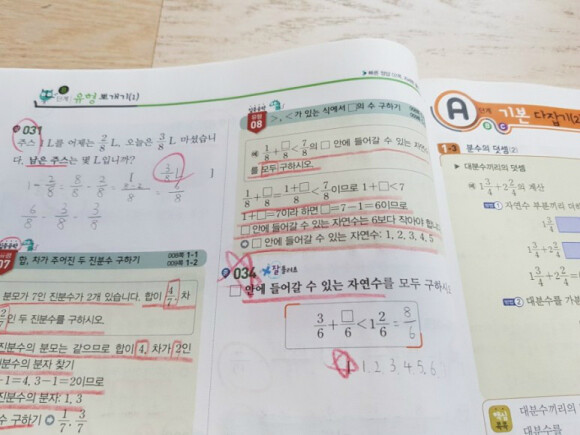 유형 뽀개기(1)
031
주스 1 L를 어제는 2/8 L, 오늘은 3/8 L 마셨습니
다. 남은 주스는 몇 L입니까?
3/8 L
1 - 2/8 = 8/8 - 2/8 =
6/8 - 3/8 = 3/8
07 합, 차가 주어진 두 진분수 구하기
006쪽 1-1
009쪽 1-2
분모가 7인 진분수가 2개 있습니다. 합이 4/7, 차
2/7인 두 진분수를 구하시오.
진분수의 분모는 같으므로 합이 4, 차가 2인
분수의 분자 찾기
-1=4, 3-1=2이므로
진분수의 분자: 1, 3
수 구하기 1/7, 3/7
유형 08 >, <가 있는 식에서 □의 수 구하기
예 1/8 + □/8 < 7/8의 □ 안에 들어갈 수 있는 자연수
를 모두 구하시오.
1/8 + □/8 = 1+□/8 < 7/8이므로 1+□<7
1+□=7이라 하면 □=7-1=6이므로
□ 안에 들어갈 수 있는 자연수는 6보다 작아야 합니
□ 안에 들어갈 수 있는 자연수: 1, 2, 3, 4, 5
034 잘 틀려요
□ 안에 들어갈 수 있는 자연수를 모두 구하시오
3/6 + □/6 < 1 2/6 = 8/6
1, 2, 3, 4, 5, 6
A 단계 기본 다잡기(2)
B C
1-3 분수의 덧셈(2)
▶ 대분수끼리의 덧셈
예 1 3/4 + 2 2/4의 계산
방법 1 자연수 부분끼리 더하
1 3/4
2 2/4
1 3/4 + 2 2/4 =
방법 2 대분수를 가분
대분수끼리의
대분수를